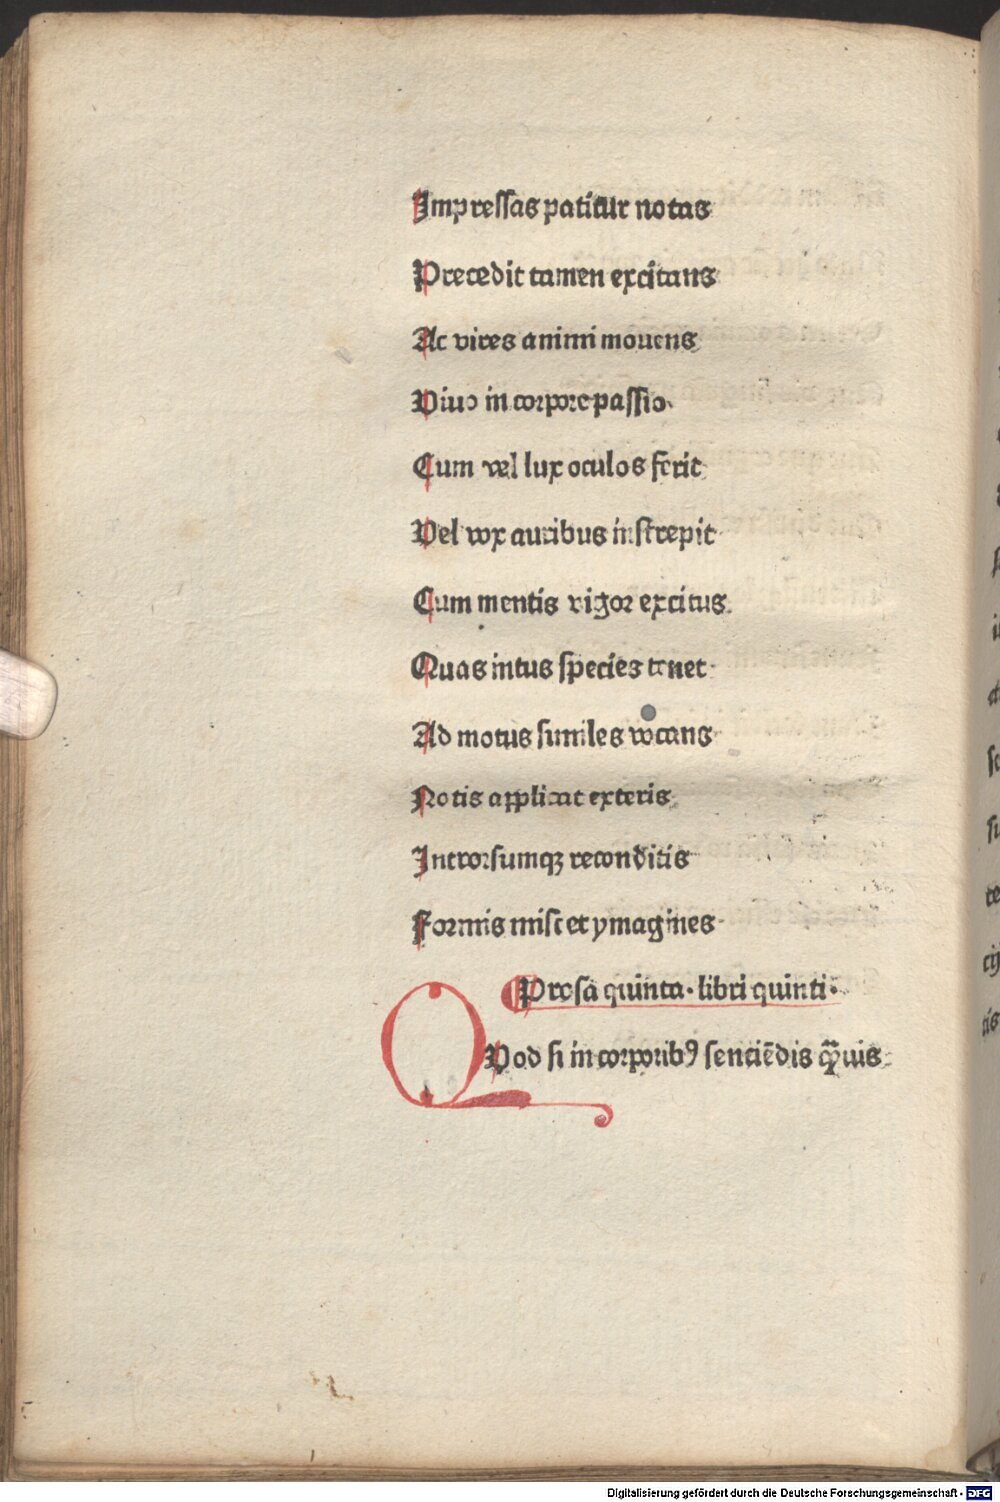 Impressas patitur notas
Precedit tamen excitans
Ac vires animi mouens
Viuo in corpore passio·
Cum vel lux oculos ferit
Vel vox auribus instrepit·
Cum mentis vigor excitus.
Quas intus species tenet·
Ad motus similes vocans
Notis applicat exteris
Introrsumqꝫ reconditis
Formis miscet ymagines·
Prosa quinta· libri quinti·
QVod si in corporibꝰ senciēdis q̄uis
Digitalisierung gefördert durch die Deutsche Forschungsgemeinschaft - DFG